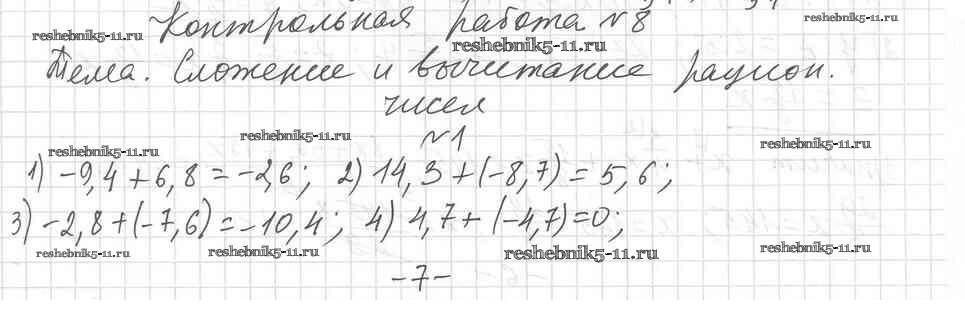 Контрольная работа №8
Тема. Сложение и вычитание рацион.
чисел
№1
1) -9,4 + 6,8 = -2,6; 2) 14,3 + (-8,7) = 5,6;
3) -2,8 + (-7,6) = -10,4; 4) 4,7 + (-4,7) = 0;
-7-
reshebnik5-11.ru
reshebnik5-11.ru
reshebnik5-11.ru
reshebnik5-11.ru
reshebnik5-11.ru
reshebnik5-11.ru
reshebnik5-11.ru
reshebnik5-11.ru
reshebnik5-11.ru
reshebnik5-11.ru